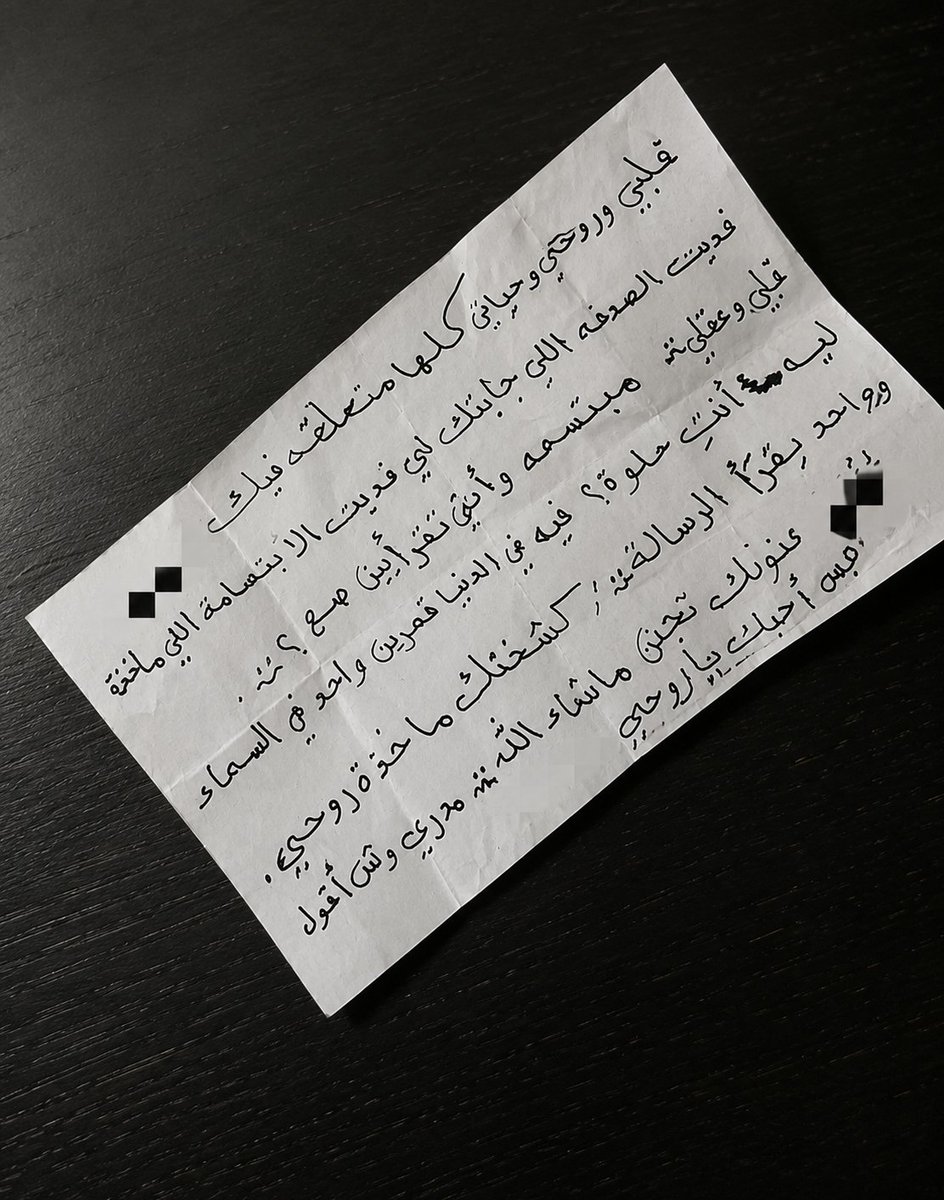 قلبي وروحي وحياتي كلها متعلقه فيك
فديت الصدفه اللي جابتك لي فديت الابتسامة اللي ماخذة
قلبي وعقلي مبتسمه وأنتي تقرأيين صح ؟
ليه أنتِ حلوة؟ فيه في الدنيا قمرين واحد في السماء
وواحد يقرأ الرسالة كشختك ماخذة روحيي.
عنونك تجنن ماشاء الله مدري وش أقول
بس أحبك ياروحيي